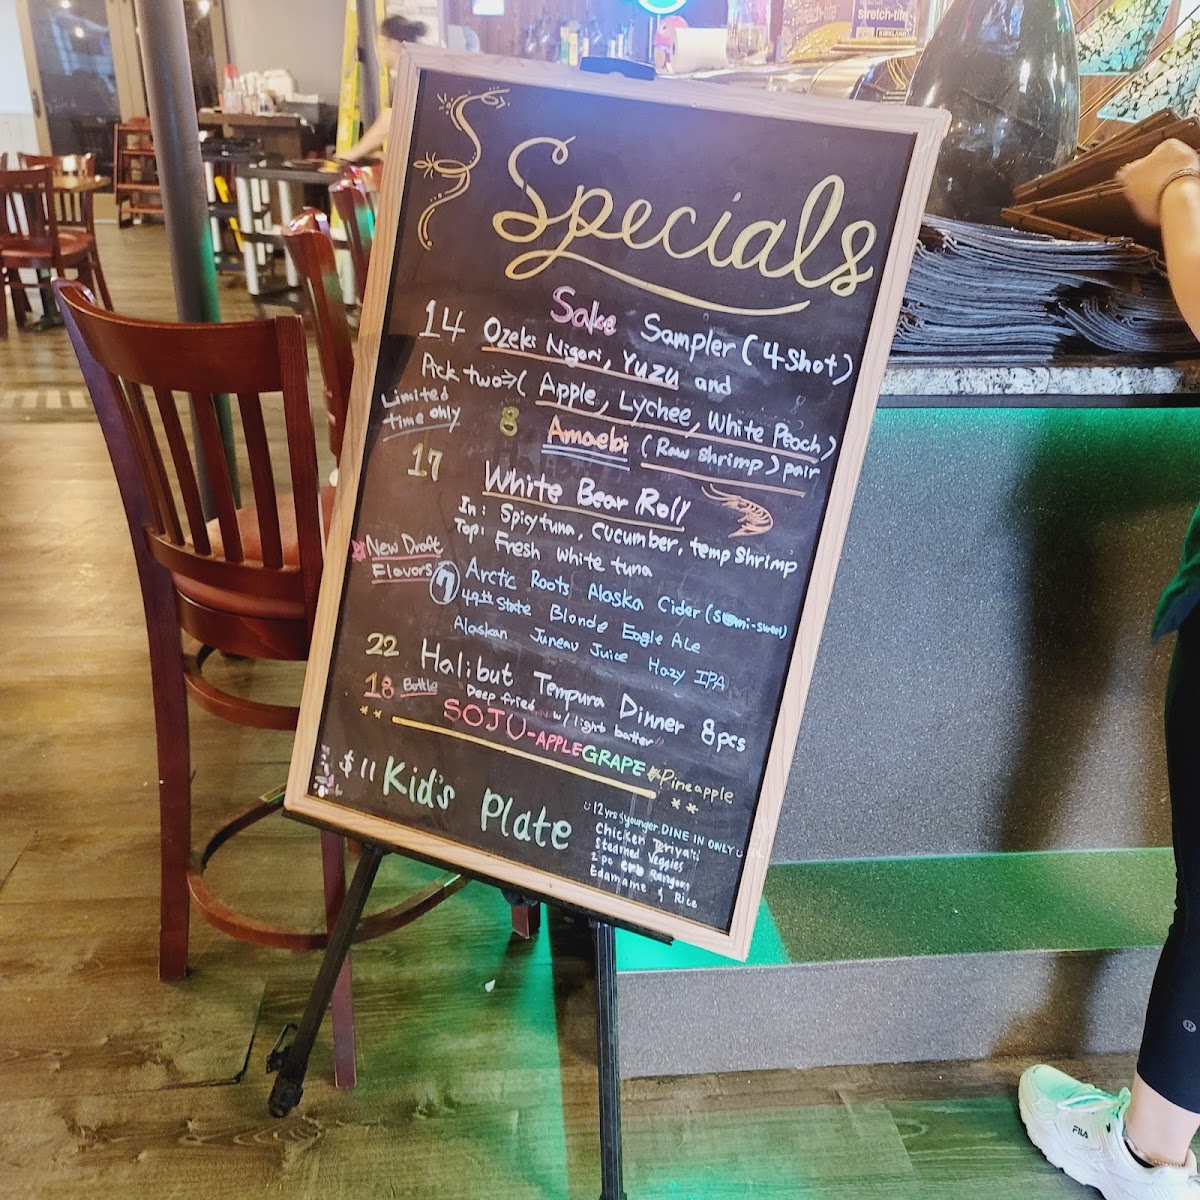 stretch-tite
KIRKLAND
Specials
14 Sake Sampler (4 shot)
Ozeki Nigori, Yuzu and
Pick two⇒( Apple, Lychee, White Peach)
Limited
time only
8 Amaebi (Raw Shrimp) pair
17 White Bear Roll
In: Spicy tuna, Cucumber, temp Shrimp
Top: Fresh white tuna
*New Draft
Flavors
7 Arctic Roots Alaska Cider (Semi-sweet)
49th State Blonde Eagle Ale
Alaskan Juneau Juice Hazy IPA
22 Halibut Tempura Dinner 8pcs
Deep fried w/ light batter
18 Bottle SOJU - APPLE GRAPE *Pineapple
$11 Kid's Plate
12 yrs & younger. DINE IN ONLY
Chicken Teriyaki
Steamed Veggies
2 pc Rangoon
Edamame & Rice
FILA